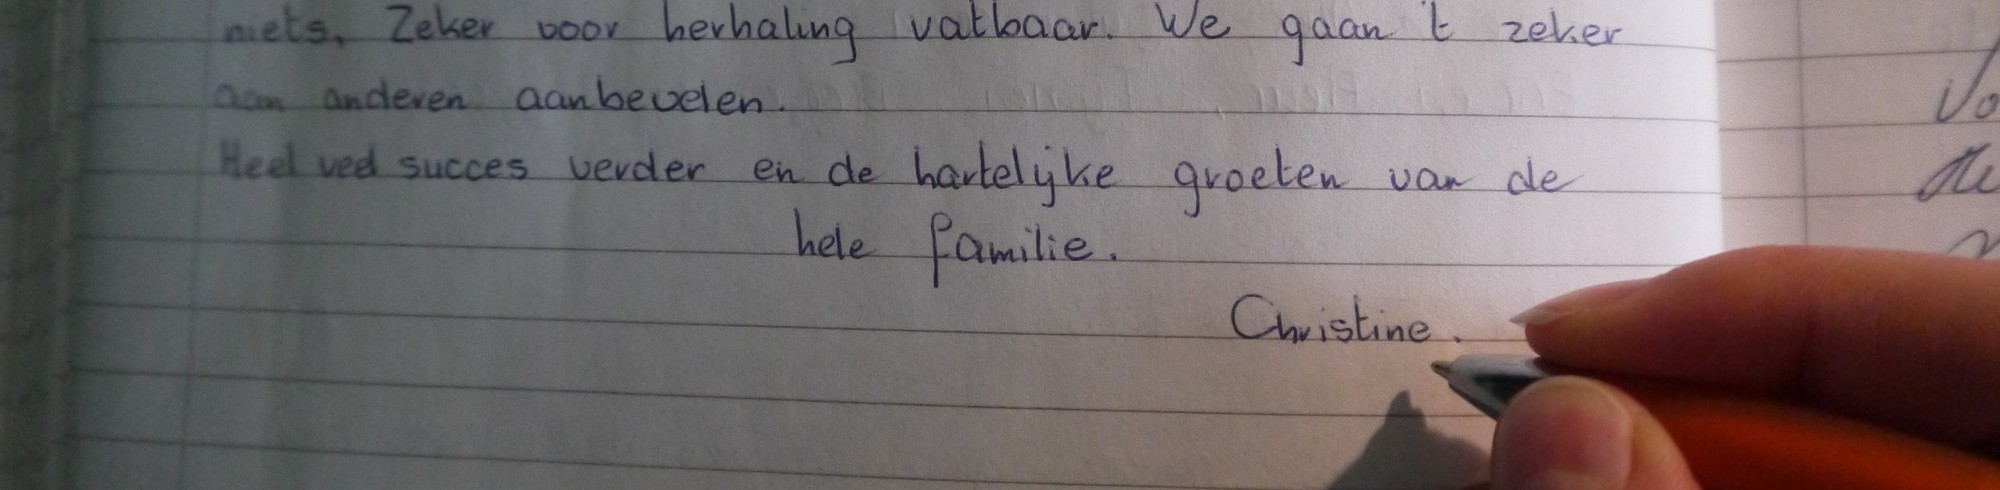 niets. Zeker voor herhaling vatbaar. We gaan 't zeker
aan anderen aanbevelen.
Heel veel succes verder en de hartelijke groeten van de
hele familie.
Christine.